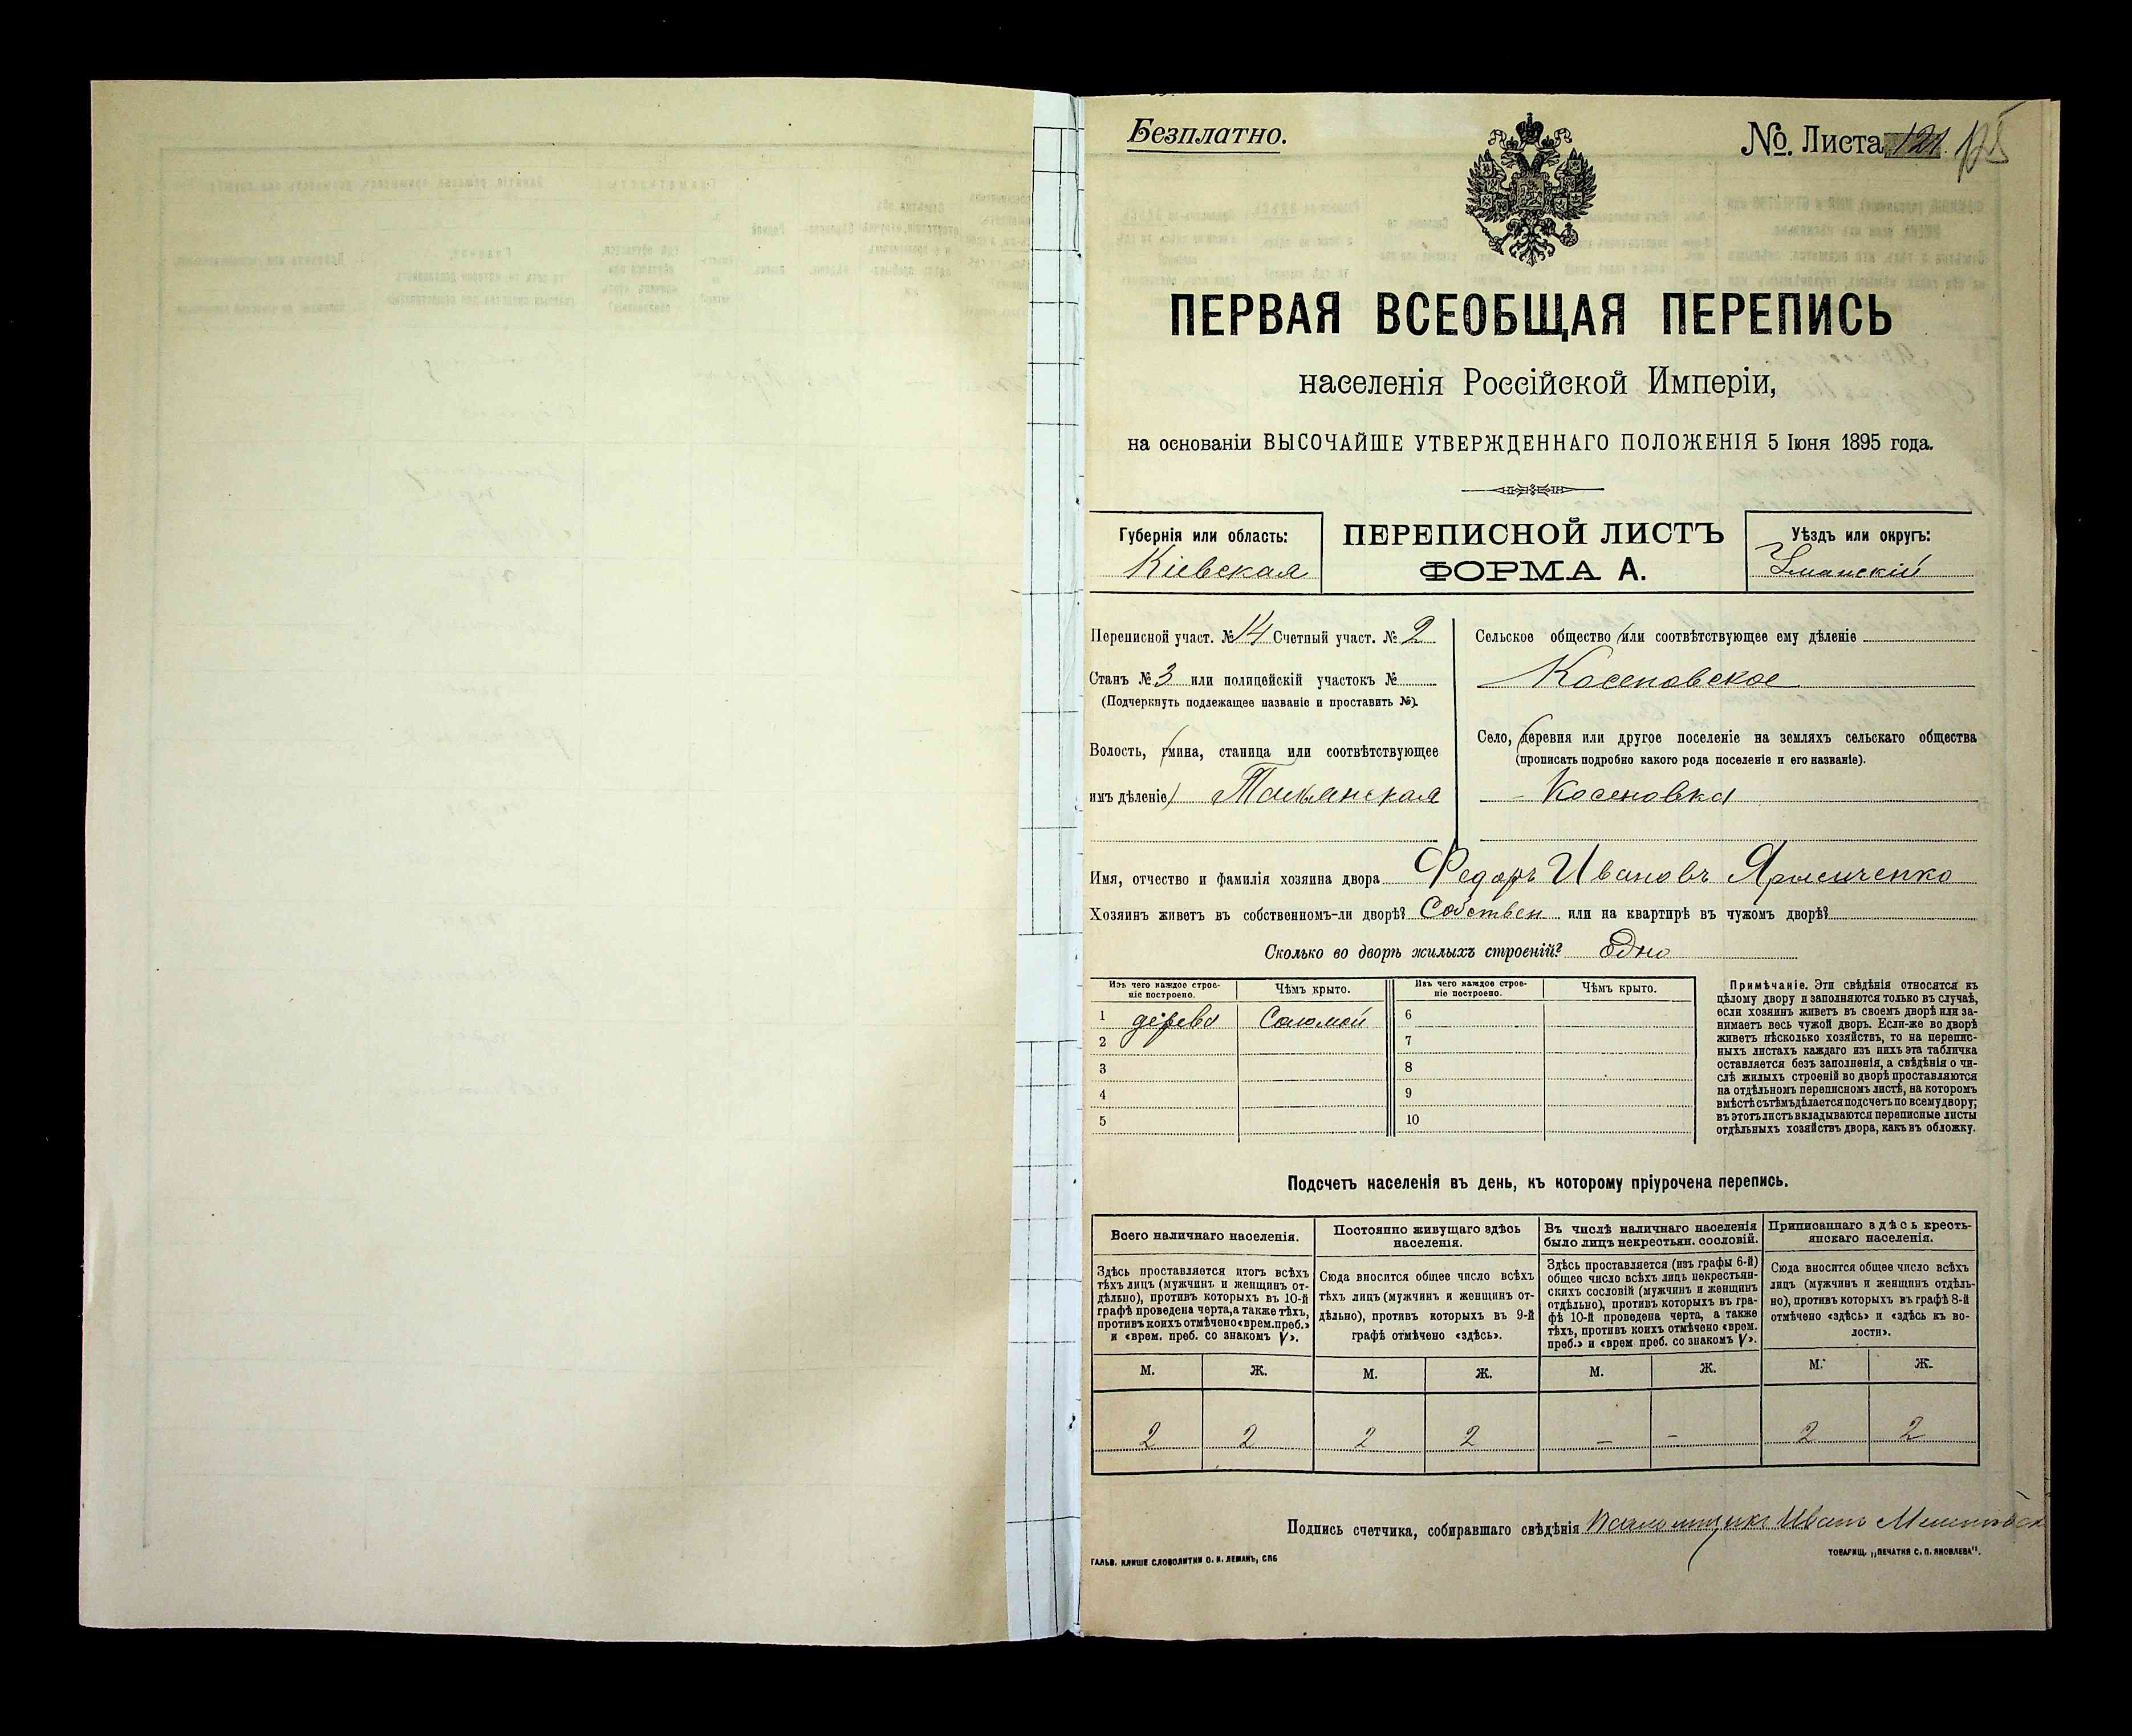 Безплатно.
№. Листа 121. 125
ПЕРВАЯ ВСЕОБЩАЯ ПЕРЕПИСЬ
населенія Россійской Имперіи,
на основаніи ВЫСОЧАЙШЕ УТВЕРЖДЕННАГО ПОЛОЖЕНІЯ 5 Іюня 1895 года.
Губернія или область:
Кіевская
ПЕРЕПИСНОЙ ЛИСТЪ
ФОРМА А.
Уѣздъ или округъ:
Уманскій
Переписной участ. № 14 Счетный участ. № 2
Станъ № 3 или полицейскій участокъ №
(Подчеркнуть подлежащее названіе и проставить №).
Волость, гмина, станица или соотвѣтствующее
имъ дѣленіе) Тальянская
Сельское общество (или соотвѣтствующее ему дѣленіе
Косеновское
Село, (деревня или другое поселеніе на земляхъ сельскаго общества
(прописать подробно какого рода поселеніе и его названіе).
Косеновка
Имя, отчество и фамилія хозяина двора Федоръ Ивановъ
Хозяинъ живетъ въ собственномъ-ли дворѣ? Собствен или на квартирѣ въ чужомъ дворѣ?
Сколько во дворѣ жилыхъ строеній? Одно
Изъ чего каждое строе-
ніе построено.
Чѣмъ крыто.
Изъ чего каждое строе-
ніе построено.
Чѣмъ крыто.
1 дерево Соломой 6
2 7
3 8
4 9
5 10
Примѣчаніе. Эти свѣдѣнія относятся къ
цѣлому двору и заполняются только въ случаѣ,
если хозяинъ живетъ въ своемъ дворѣ или за-
нимаетъ весь чужой дворъ. Если-же во дворѣ
живетъ нѣсколько хозяйствъ, то на перепис-
ныхъ листахъ каждаго изъ нихъ эта табличка
оставляется безъ заполненія, а свѣдѣнія о чи-
слѣ жилыхъ строеній во дворѣ проставляются
на отдѣльномъ переписномъ листѣ, на которомъ
вмѣстѣ съ тѣмъ дѣлается подсчетъ по всему двору;
въ этотъ листъ вкладываются переписные листы
отдѣльныхъ хозяйствъ двора, какъ въ обложку.
Подсчетъ населенія въ день, къ которому пріурочена перепись.
Всего наличнаго населенія.
Здѣсь проставляется итогъ всѣхъ
тѣхъ лицъ (мужчинъ и женщинъ от-
дѣльно), противъ которыхъ въ 10-й
графѣ проведена черта, а также тѣхъ,
противъ коихъ отмѣчено «врем. преб.»
и «врем. преб. со знакомъ V».
Постоянно живущаго здѣсь
населенія.
Сюда вносится общее число всѣхъ
тѣхъ лицъ (мужчинъ и женщинъ от-
дѣльно), противъ которыхъ въ 9-й
графѣ отмѣчено «здѣсь».
Въ числѣ наличнаго населенія
было лицъ некрестьян. сословій.
Здѣсь проставляется (изъ графы 6-й)
общее число всѣхъ лицъ некрестьян-
скихъ сословій (мужчинъ и женщинъ
отдѣльно), противъ которыхъ въ гра-
фѣ 10-й проведена черта, а также
тѣхъ, противъ коихъ отмѣчено «врем.
преб.» и «врем преб. со знакомъ V».
Приписаннаго здѣсь кресть-
янскаго населенія.
Сюда вносится общее число всѣхъ
лицъ (мужчинъ и женщинъ отдѣль-
но), противъ которыхъ въ графѣ 8-й
отмѣчено «здѣсь» и «здѣсь къ во-
лости».
М. Ж. М. Ж. М. Ж. М. Ж.
2 2 2 2 – – 2 2
Подпись счетчика, собиравшаго свѣдѣнія Иванъ
ГАЛЬВ. КЛИШЕ СЛОВОЛИТНИ О. И. ЛЕМАНЪ, СПБ
ТОВАРИЩ. „ПЕЧАТНЯ С. П. ЯКОВЛЕВА".